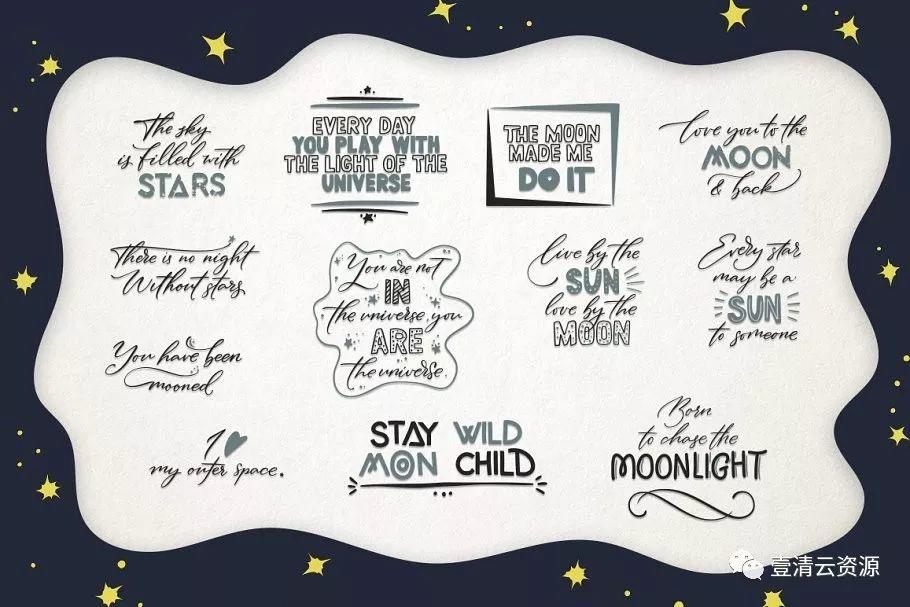 The sky
is filled with
STARS
EVERY DAY
YOU PLAY WITH
THE LIGHT OF THE
UNIVERSE
THE MOON
MADE ME
DO IT
love you to the
MOON
& back
There is no night
Without stars
You are not
IN
the universe, you
ARE
the universe.
live by the
SUN
love by the
MOON
Every star
may be a
SUN
to someone
You have been
mooned
I
my outer space.
STAY WILD
MON CHILD
Born
to chase the
MOONLIGHT
壹清云资源